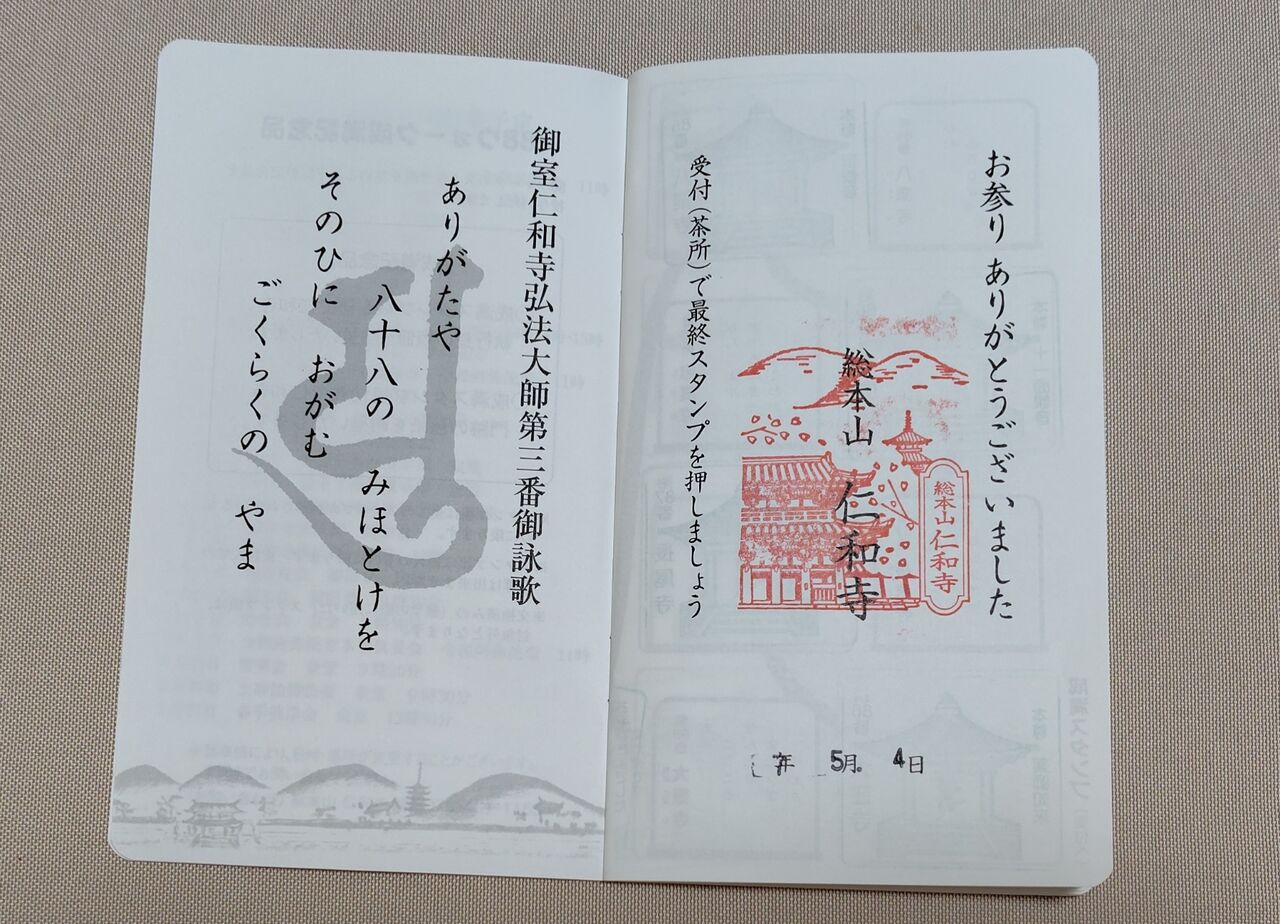 お参り ありがとうございました
総本山 仁和寺
総本山仁和寺
受付(茶所)で最終スタンプを押しましょう
年 5月 4日
御室仁和寺弘法大師第三番御詠歌
ありがたや
八十八の みほとけを
そのひに おがむ
ごくらくの やま